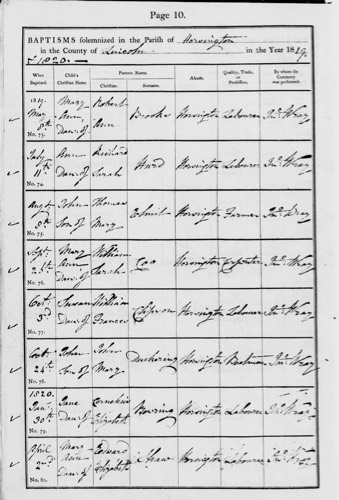 Page 10.
BAPTISMS solemnized in the Parish of Horsington
in the County of Lincoln in the Year 1819.
& 1820.
When Baptized. Child's Christian Name. Parents Name. Christian. Surname. Abode. Quality, Trade, or Profession. By whom the Ceremony was performed.
1819. Mary Robert
May Ann Brooks Horsington Labourer Jno. Wray
8th Daur. of Ann
No. 73.
July Ann Richard
11th Daur. of Sarah Hurd Horsington Labourer Jno. Wray
No. 74.
Augt John Thomas
8th Son of Mary Horsington Farmer Jno. Wray
No. 75.
Sept. Mary William
Ann Horsington Carpenter Jno. Wray
Daur. of Sarah
No. 76.
Octr Susan William
3rd Daur. of Frances Horsington Labourer Jno. Wray
No. 77.
Octr John John
24th Son of Mary Horsington Boatman Jno. Wray
No. 78.
1820. Jane Cornelius
Jany
30th Daur. of Elizabeth Horsington Labourer Jno. Wray
No. 79.
April Mary Edward
2nd Ann Shaw Horsington Labourer Jno. Wray
Daur. of Elizabeth
No. 80.